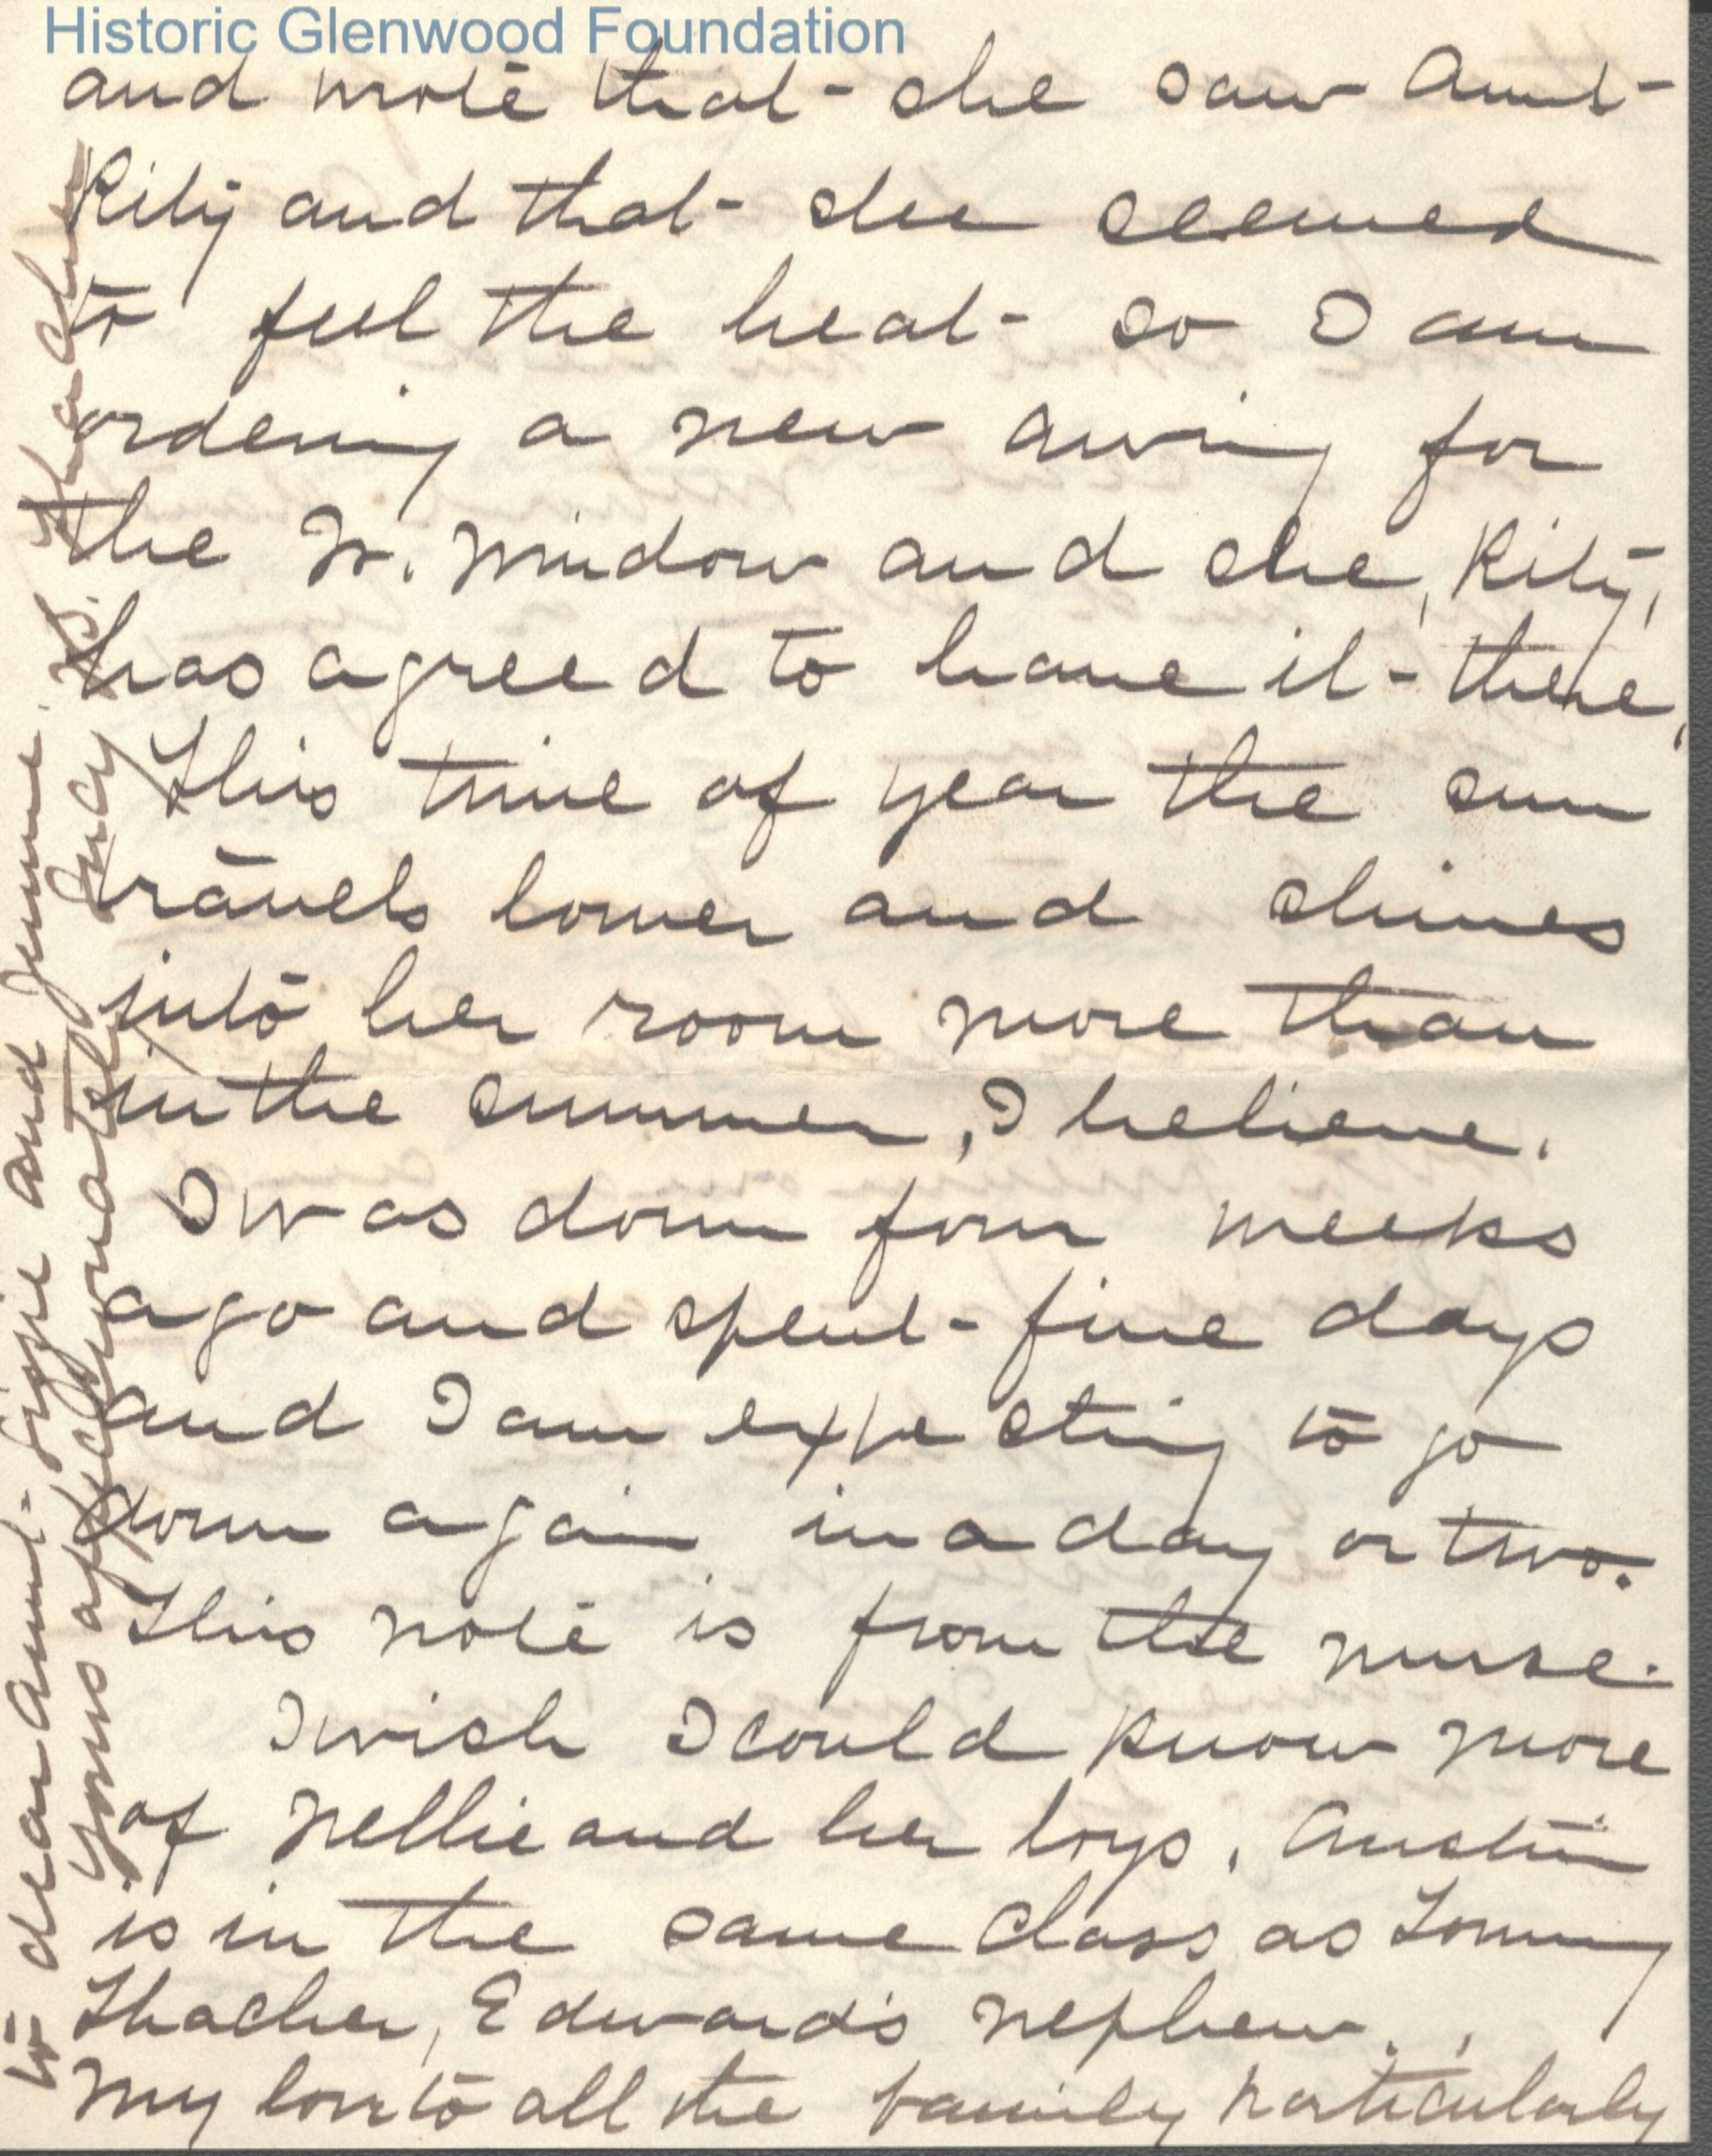 Historic Glenwood Foundation
and wrote that she saw Aunt
Kitty and that she seemed
to feel the heat so I am
ordering a new awning for
the W. window and she, Kitty,
has agreed to have it there.
This time of year the sun
travels lower and shines
into her room more than
in the summer, I believe.
I was down four weeks
ago and spent five days
and I am expecting to go
down again in a day or two.
This note is from the nurse.
I wish I could know more
of Nellie and her boys. Austin
is in the same class as Tommy
Thacher, Edward's nephew.
My love to all the family particularly
to dear Aunt Lizzie and Jennie.
Yours affectionately Lucy S. Thacher